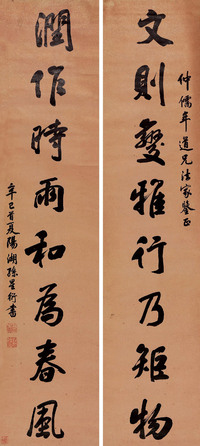 文則雙雅行乃矩物
仲儒年道兄法家鑒正
潤作時雨和為春風
辛巳首夏陽湖孫星衍書